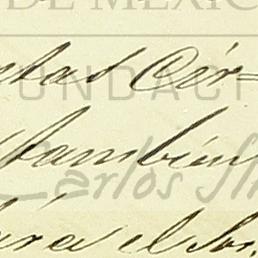 DE MÉXICO
tas Cir=
FUNDACI
también
Carlos Sl
ra el Sor.